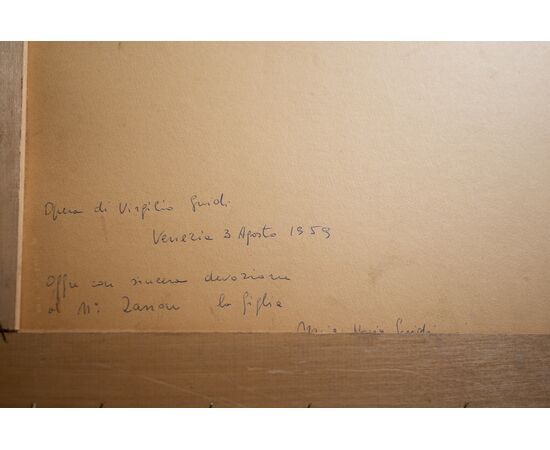 Opera di Virgilio Guidi
Venezia 3 Agosto 1959
Offre con sincera devozione
al Mº Zanon la figlia
Maria Guidi